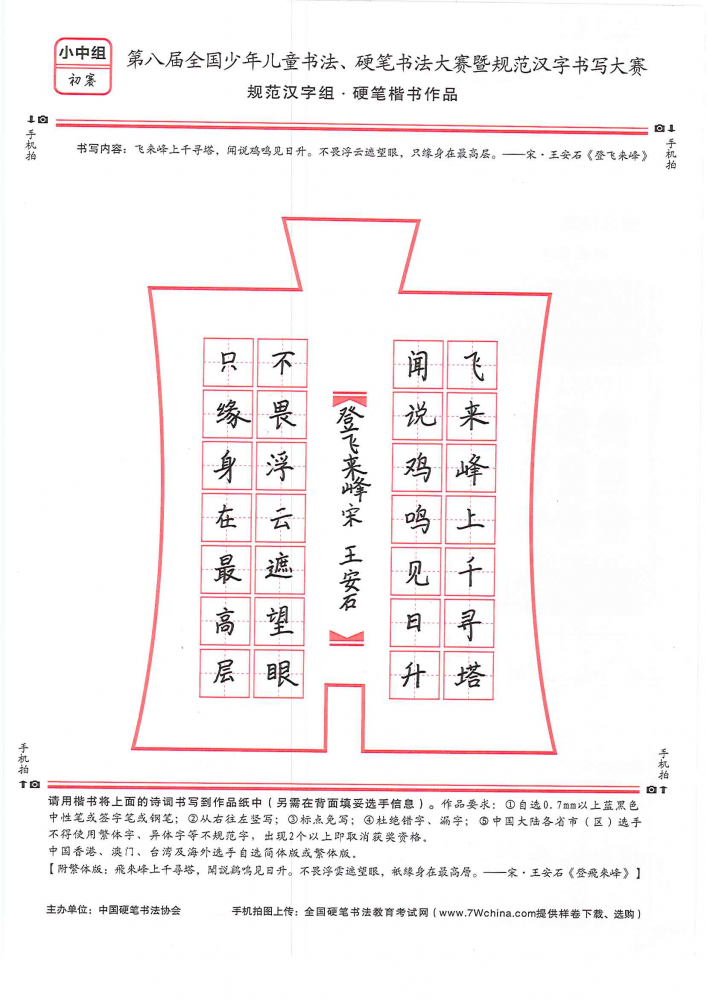 小中组
初赛
第八届全国少年儿童书法、硬笔书法大赛暨规范汉字书写大赛
规范汉字组·硬笔楷书作品
手机拍
手机拍
书写内容：飞来峰上千寻塔，闻说鸡鸣见日升。不畏浮云遮望眼，只缘身在最高层。——宋·王安石《登飞来峰》
飞来峰上千寻塔
闻说鸡鸣见日升
登飞来峰宋 王安石
不畏浮云遮望眼
只缘身在最高层
手机拍
手机拍
请用楷书将上面的诗词书写到作品纸中（另需在背面填妥选手信息）。作品要求：①自选0.7mm以上蓝黑色
中性笔或签字笔或钢笔；②从右往左竖写；③标点免写；④杜绝错字、漏字；⑤中国大陆各省市（区）选手
不得使用繁体字、异体字等不规范字，出现2个以上即取消获奖资格。
中国香港、澳门、台湾及海外选手自选简体版或繁体版。
【附繁体版：飛來峰上千尋塔，聞說鷄鳴見日升。不畏浮雲遮望眼，衹緣身在最高層。——宋·王安石《登飛來峰》】
主办单位：中国硬笔书法协会
手机拍图上传：全国硬笔书法教育考试网（www.7Wchina.com提供样卷下载、选购）